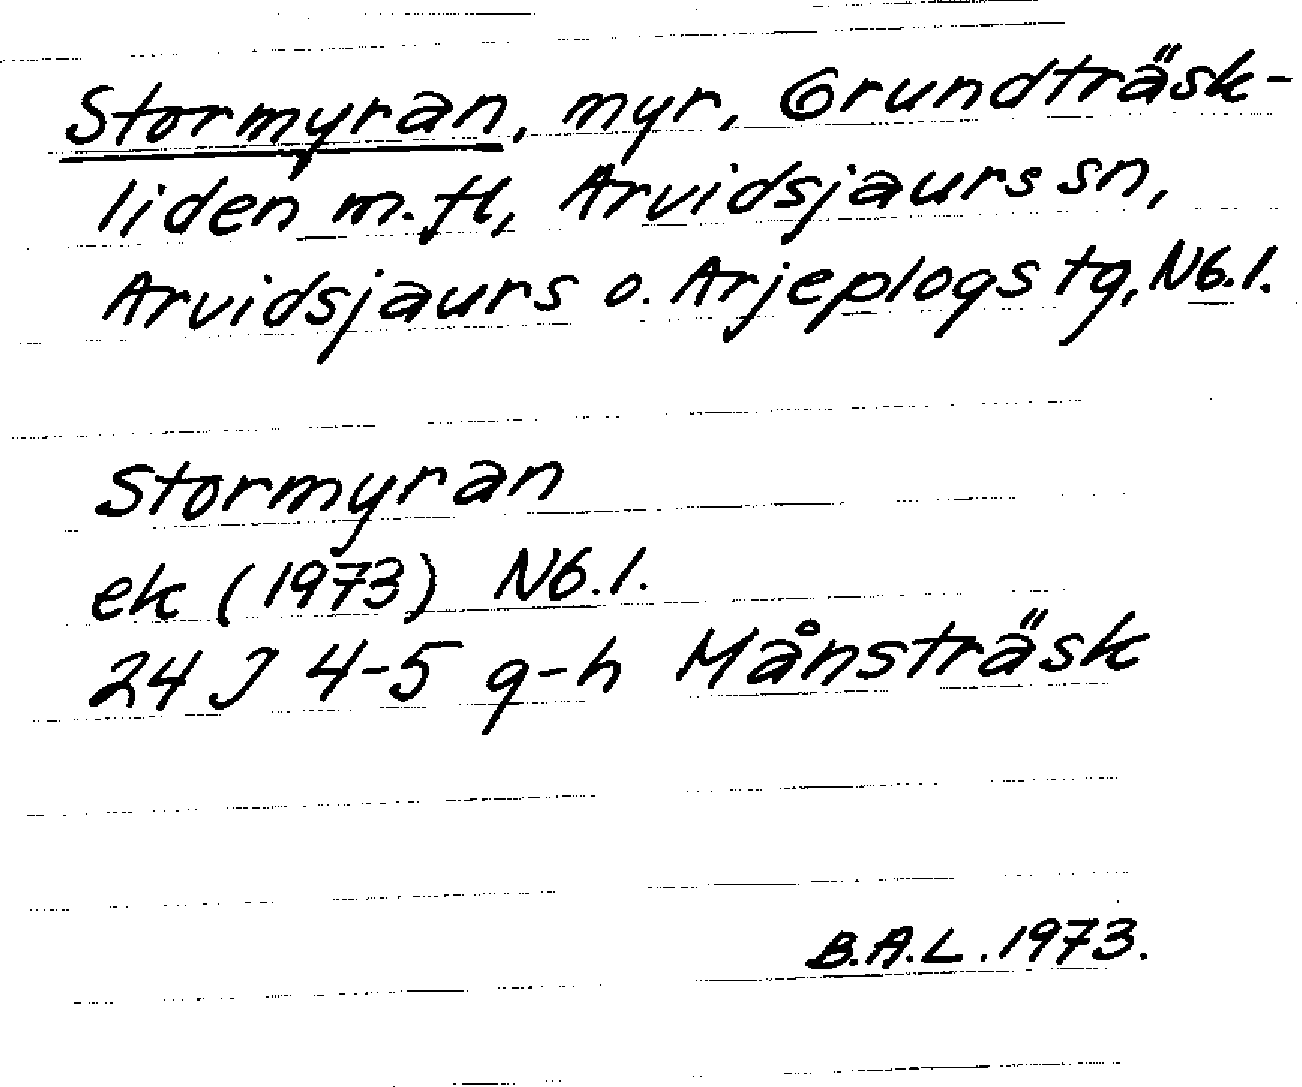 Stormyran, myr, Grundträsk-
liden m.fl, Arvidsjaurs sn,
Arvidsjaurs o. Arjeplogs tg, Nb.l.
Stormyran
ek (1973) Nb.l.
24 J 4-5 g-h Månsträsk
B.A.L. 1973.